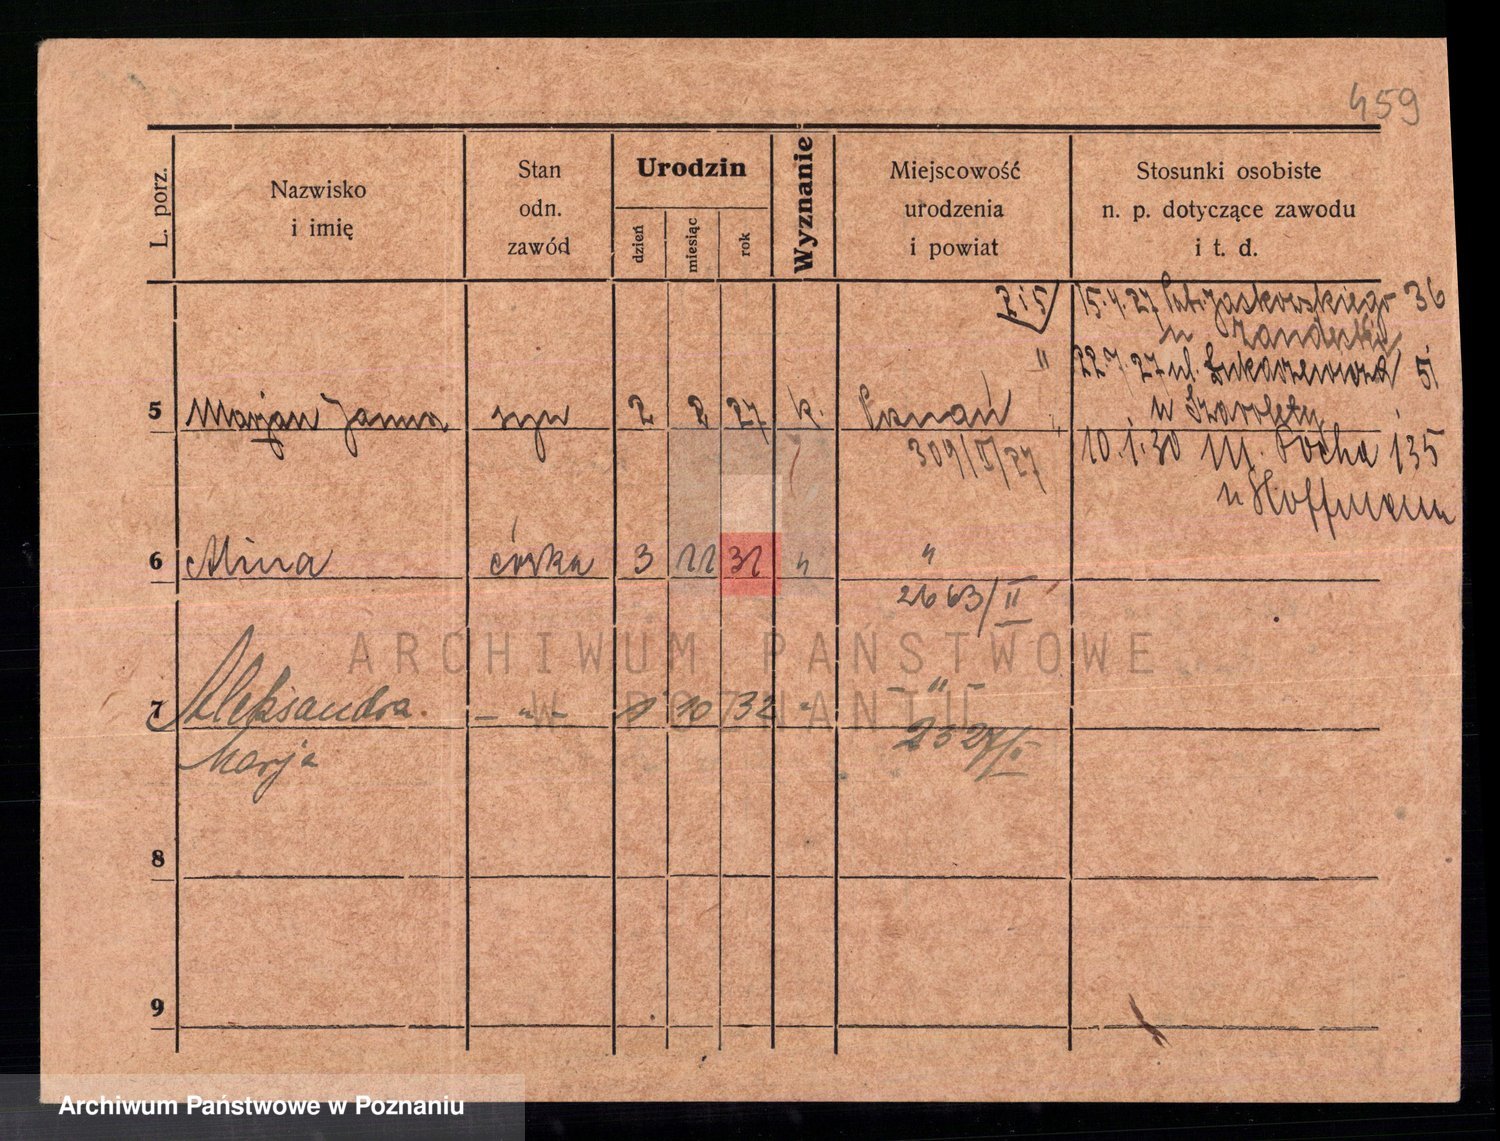 459
L. porz.
Nazwisko
i imię
Stan
odn.
zawód
Urodzin
dzień
miesiąc
rok
Wyznanie
Miejscowość
urodzenia
i powiat
Stosunki osobiste
n. p. dotyczące zawodu
i t. d.
2 i 5
15.4.27 Patr. Jaskowskiego 36
u
" 22.7.27 ul. Łukaszewicza 5
u
5 Marjan syn 2 2 27 k. Poznań
309/II/27
10.1.30 M. Focha 135
u Hoffmann
6 Alina córka 3 11 31 " "
2663/II
7 Aleksandra - " - 10 32 " - " -
Marja
8
9
ARCHIWUM PAŃSTWOWE
W POZNANIU
Archiwum Państwowe w Poznaniu